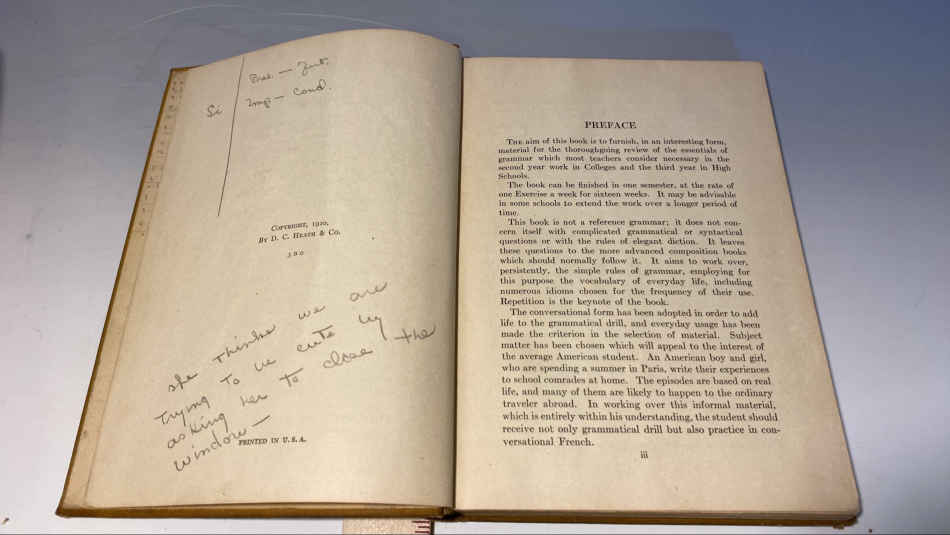 Pres. — Fut.
Si Imp — Cond.
Copyright, 1920,
By D. C. Heath & Co.
she thinks we are
trying to be cute by
asking her to close the
window —
PRINTED IN U.S.A.
PREFACE
The aim of this book is to furnish, in an interesting form,
material for the thoroughgoing review of the essentials of
grammar which most teachers consider necessary in the
second year work in Colleges and the third year in High
Schools.
The book can be finished in one semester, at the rate of
one Exercise a week for sixteen weeks. It may be advisable
in some schools to extend the work over a longer period of
time.
This book is not a reference grammar; it does not con-
cern itself with complicated grammatical or syntactical
questions or with the rules of elegant diction. It leaves
these questions to the more advanced composition books
which should normally follow it. It aims to work over,
persistently, the simple rules of grammar, employing for
this purpose the vocabulary of everyday life, including
numerous idioms chosen for the frequency of their use.
Repetition is the keynote of the book.
The conversational form has been adopted in order to add
life to the grammatical drill, and everyday usage has been
made the criterion in the selection of material. Subject
matter has been chosen which will appeal to the interest of
the average American student. An American boy and girl,
who are spending a summer in Paris, write their experiences
to school comrades at home. The episodes are based on real
life, and many of them are likely to happen to the ordinary
traveler abroad. In working over this informal material,
which is entirely within his understanding, the student should
receive not only grammatical drill but also practice in con-
versational French.
iii